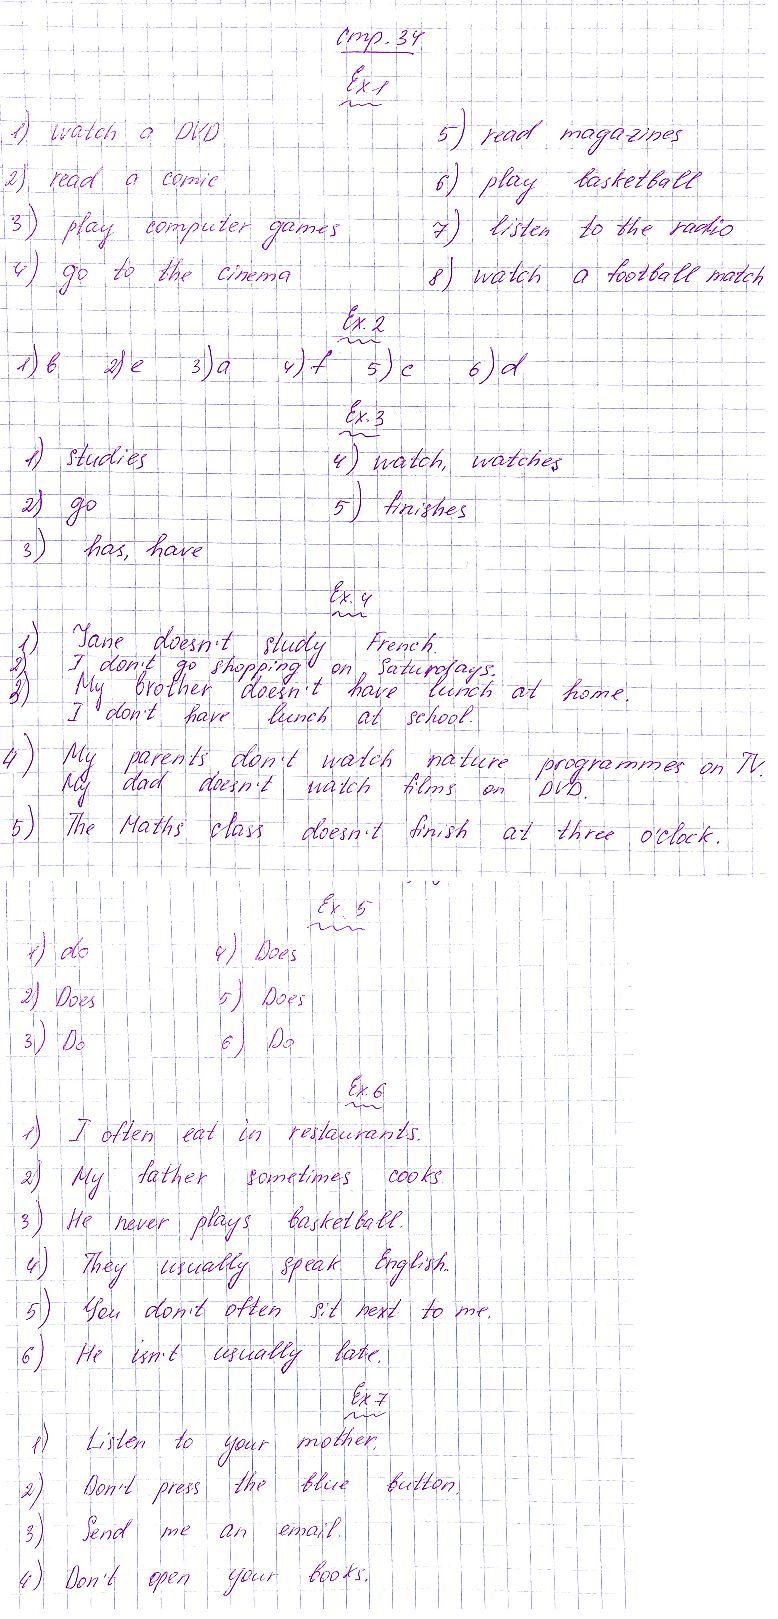 стр. 34
Ex 1
1) watch a DVD
2) read a comic
3) play computer games
4) go to the cinema
5) read magazines
6) play basketball
7) listen to the radio
8) watch a football match
Ex. 2
1) b 2) e 3) a 4) f 5) c 6) d
Ex. 3
1) studies
2) go
3) has, have
4) watch, watches
5) finishes
Ex. 4
1) Jane doesn't study French.
2) I don't go shopping on Saturdays.
3) My brother doesn't have lunch at home.
I don't have lunch at school.
4) My parents don't watch nature programmes on TV.
My dad doesn't watch films on DVD.
5) The Maths class doesn't finish at three o'clock.
Ex. 5
1) do
2) Does
3) Do
4) Does
5) Does
6) Do
Ex. 6
1) I often eat in restaurants.
2) My father sometimes cooks
3) He never plays basketball.
4) They usually speak English.
5) You don't often sit next to me.
6) He isn't usually late.
Ex 7
1) Listen to your mother.
2) Don't press the blue button.
3) Send me an email.
4) Don't open your books.